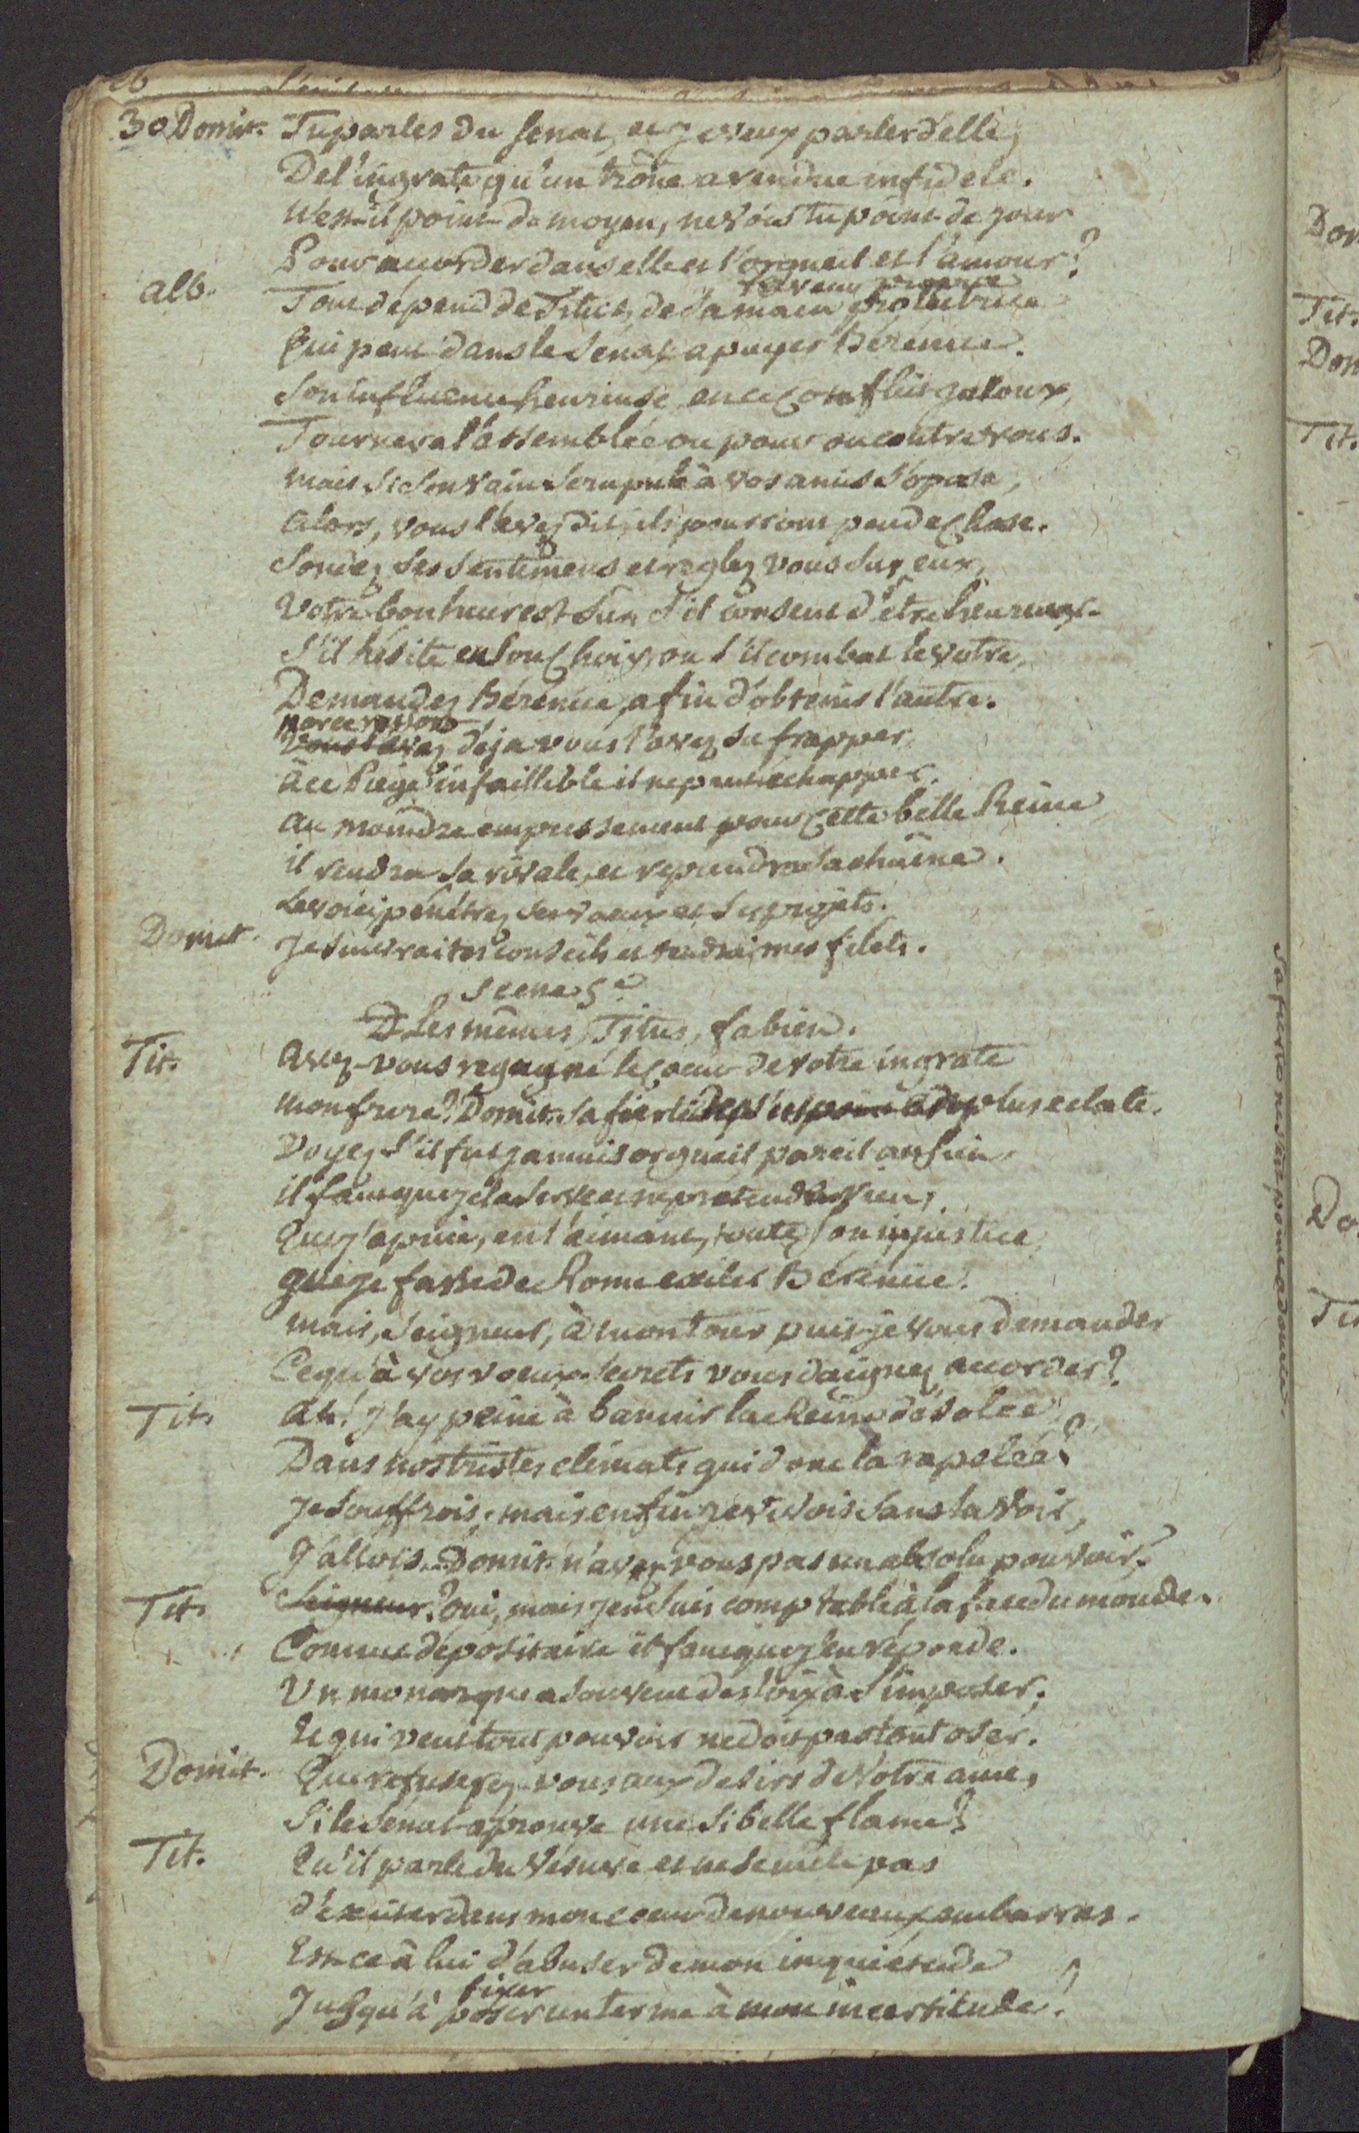 30 Domit. Tu parles du Senat, et je veux parler d'elle,
De l'ingrate qu'un trône a rendue infidele.
N'est-il point de moyen, ne vois tu point de jour
Pour accorder dans elle et l'orgueil et l'amour?
alb. Tout dépend de Titus, de sa main protectrice
Qui peut dans le Senat apuyer Bérénice.
Son influence heureuse en ce conflict jaloux,
Tournera l'assemblée ou pour ou contre vous.
mais si son vain scrupule à vos amis s'opose,
alors, vous l'avez dit, ils pourront peu de chose.
Sondez ses sentimens et reglez vous sur eux,
Votre bonheur est sûr s'il consent d'être heureux.
S'il hésite en son choix, ou s'il combat le votre,
Demandez Bérénice, afin d'obtenir l'autre.
par ce ressort
Vous l'avez déja vous l'avez su frapper,
à ce piége infaillible il ne peut échapper.
au moindre empressement pour cette belle Reine
il rendra sa rivale, et reprendra sa chaîne.
Le voici pénétrez ses voeux et ses projets.
Domit. Je suivrai tes conseils et tendrai mes filets.
Scene 5e
Les mêmes, Titus, fabien.
Tit. Avez-vous regagné le coeur de votre ingrate
mon frere? Domit. sa fierté plus eclate.
Voyez s'il fut jamais orgueil pareil au sien,
il faut que je la serve et ne prétende rien,
Que j'apuie, en l'aimant, toute son injustice,
que je fasse de Rome exiler Bérénice.
mais, Seigneur, à mon tour puis-je vous demander
Ce qu'à vos voeux secrets vous daignez accorder?
Tit. Ah! j'ay peine à bannir la Reine désolée,
Dans nos tristes climats qui donc l'a rapelée?
Je souffrois; mais enfin je vivois sans la voir,
J'allois. Domit. n'avez vous pas un absolu pouvoir?
Tit. Seigneur? oui, mais j'en suis comptable à la face du monde.
Comme dépositaire il faut que j'en réponde.
Un monarque a souvent des loix à s'imposer;
Et qui peut tout pouvoir ne doit pas tout oser.
Domit. Que refuserez-vous aux desirs de votre ame,
Si le Senat aprouve une si belle flame?
Tit. Qu'il parle du Vésuve et ne se mêle pas
d'exciter dans mon coeur de nouveaux embarras.
Est-ce à lui d'abuser de mon inquiétude
fixer
Jusqu'à poser un terme à mon incertitude?
Sa fierté n'est point adoucie.
Dom
Tit.
Dom
Tit.
Do
Tit